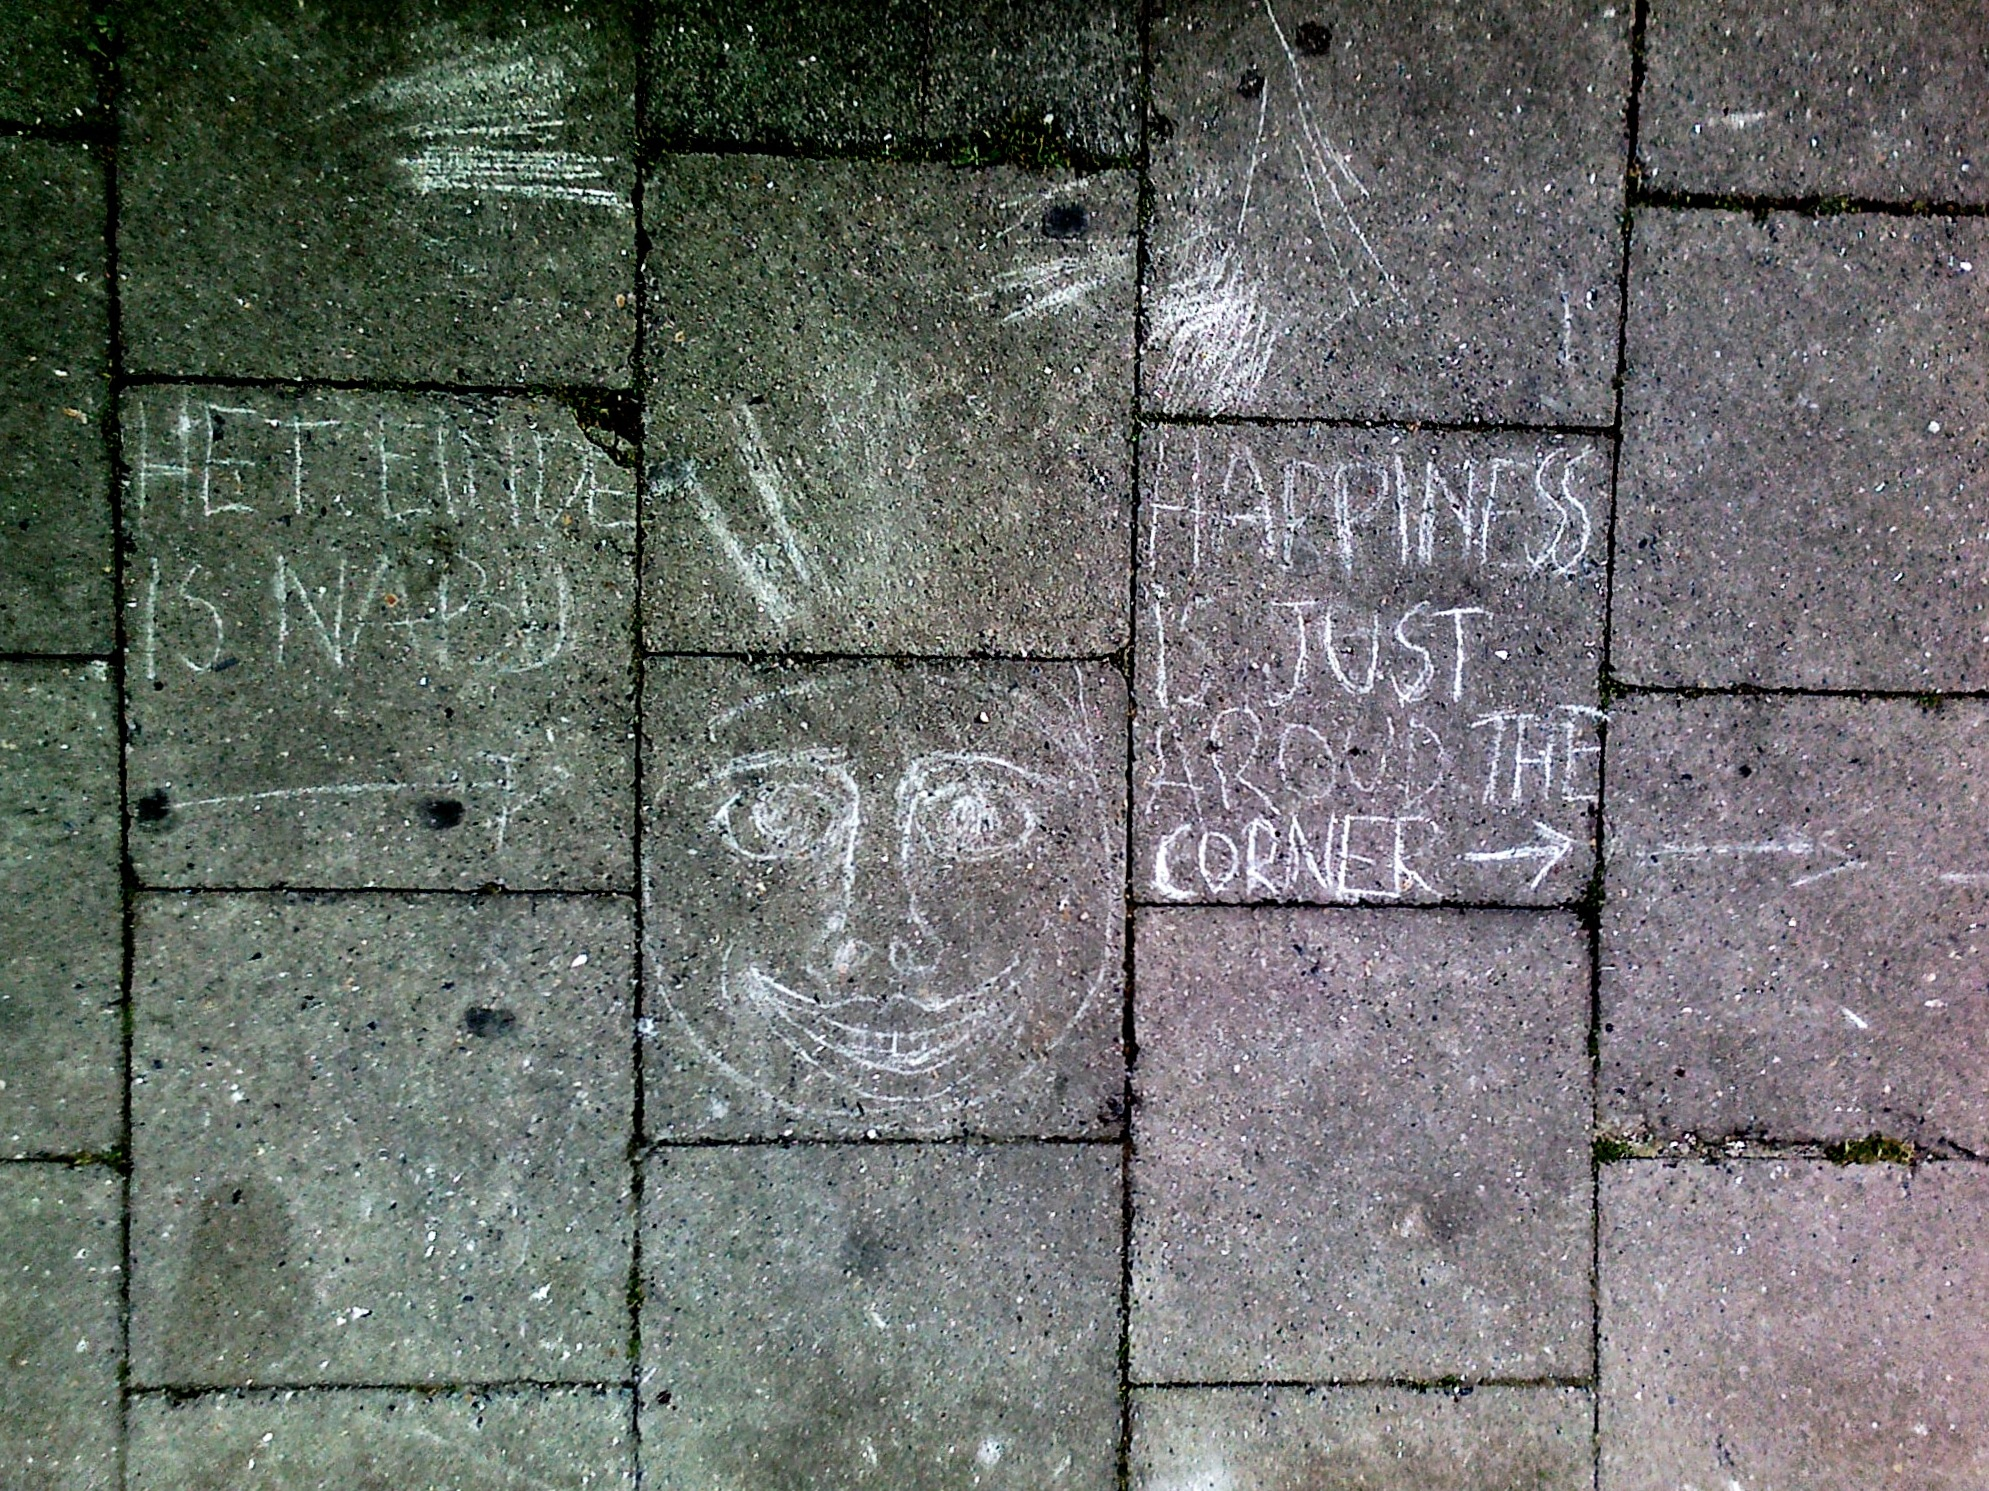 HET EINDE
IS NABIJ
HAPPINESS
IS JUST
AROUD THE
CORNER →